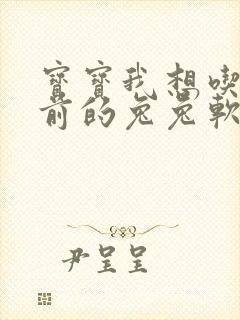 寶寶我想喫
前的兔兔軟
尹呈呈